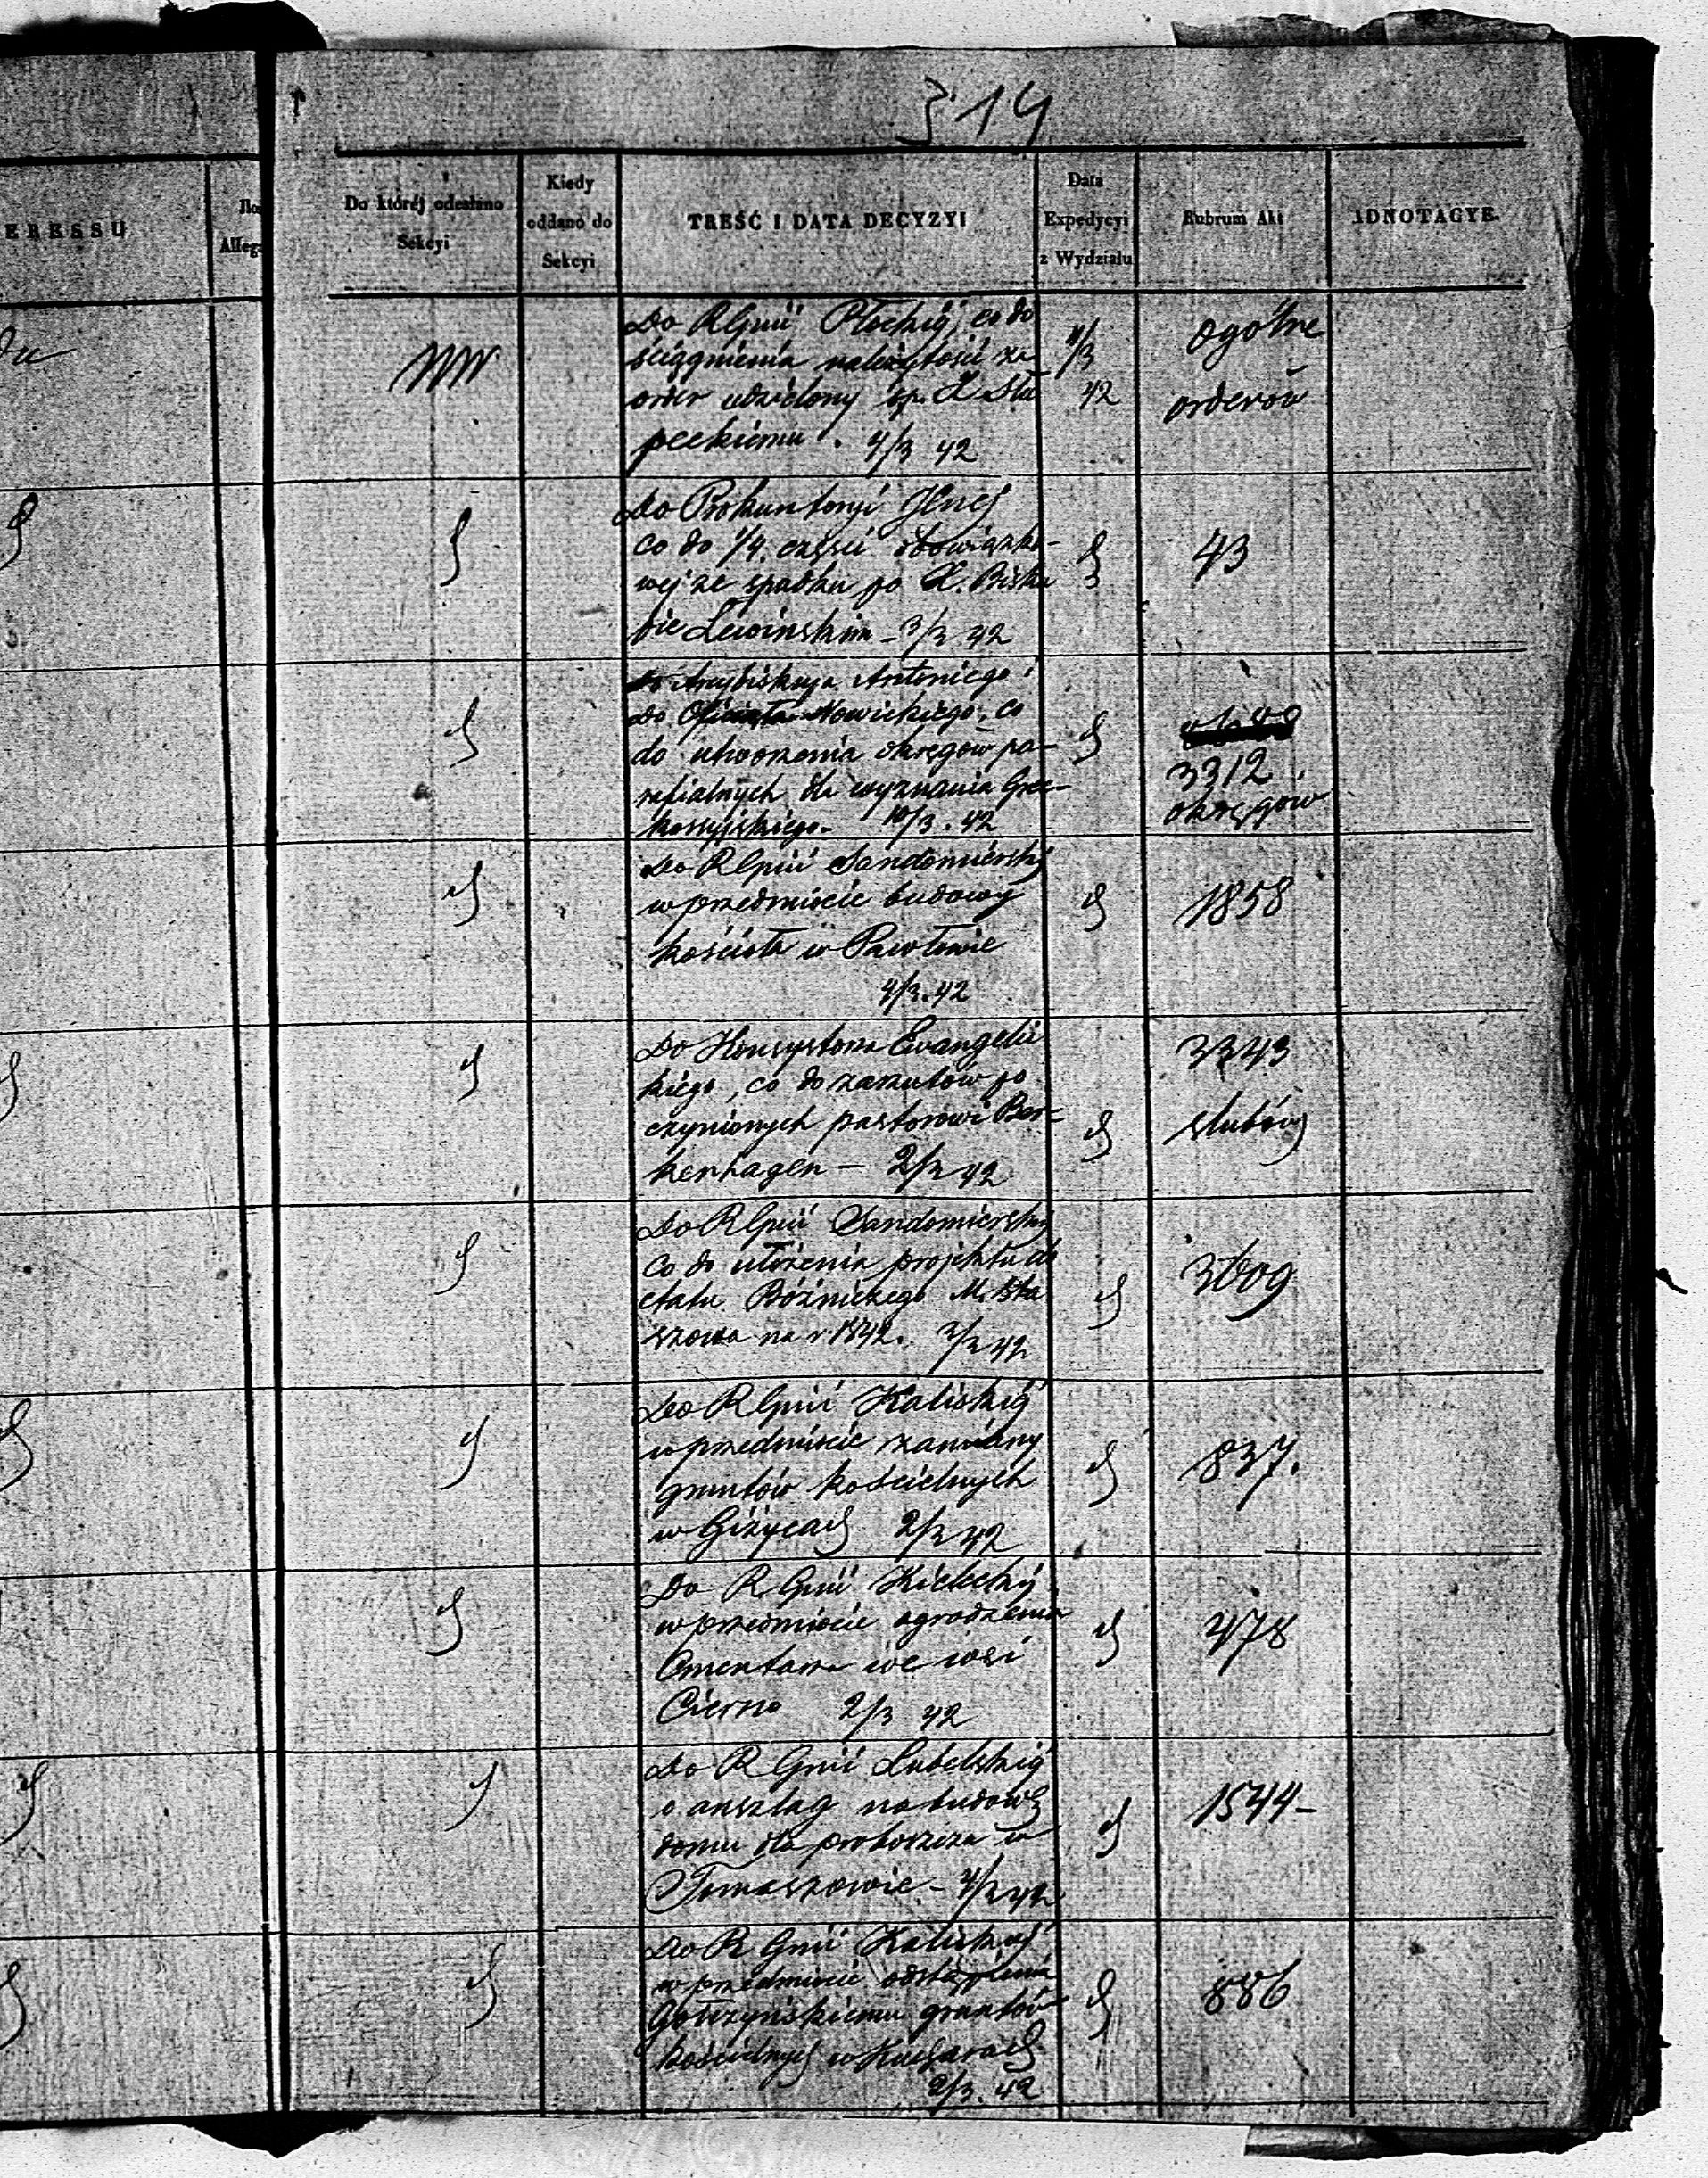 314
ERESSU
Do któréj odesłano
Sekcyi
Kiedy
oddano do
Sekcyi
TREŚĆ I DATA DECYZYI
Data
Expedycyi
z Wydziału
Rubrum Akt
ADNOTACYE.
Do RGnii Płockiej, co do
ściągnienia należytości za
order udzielony śp. X Słu
peckiemu. 4/3 42
4/3
42
Ogólne
orderów
Do Prokuratoryi Jlnej
co do 1/4 części obowiązko-
wej ze spadku po X. Bisku
pie Lewinskim - 3/3 42
43
do Arcybiskupa Antoniego i
do Oficiała Nowickiego, co
do utworzenia okręgów pa-
rafialnych dla wyznania Grec-
korossyjskiego - 10/3. 42
3312
okręgów
Do RGnii Sandomierskiej
w przedmiocie budowy
kościoła w Pawłowie
4/3. 42
1858
Do Konsystorza Ewangelic
kiego, co do zarzutów po
czynionych pastorowi Ber-
kenhagen - 2/3 42
3343
slubów
Do RGnii Sandomierskiej
co do ułożenia projektu do
etatu Bóżniczego M. Sta
szowa na r 1842. 3/3 42
Do RGnii Kaliskiej
w przedmiocie zamiany
gruntów kościelnych
w Giżycach 2/3 42
837.
Do R Gnii Kieleckiej
w przedmiocie ogrodzenia
Cmentarza we wsi
Cierno 2/3 42
478
Do R Gnii Lubelskiej
o anszlag na budowę
domu dla proboszcza w
Tomaszowie - 4/3 42
1544-
Do R Gnii Kaliskiej
w przedmiocie odstąpienia
kościelnych w Kucharach
2/3. 42
886